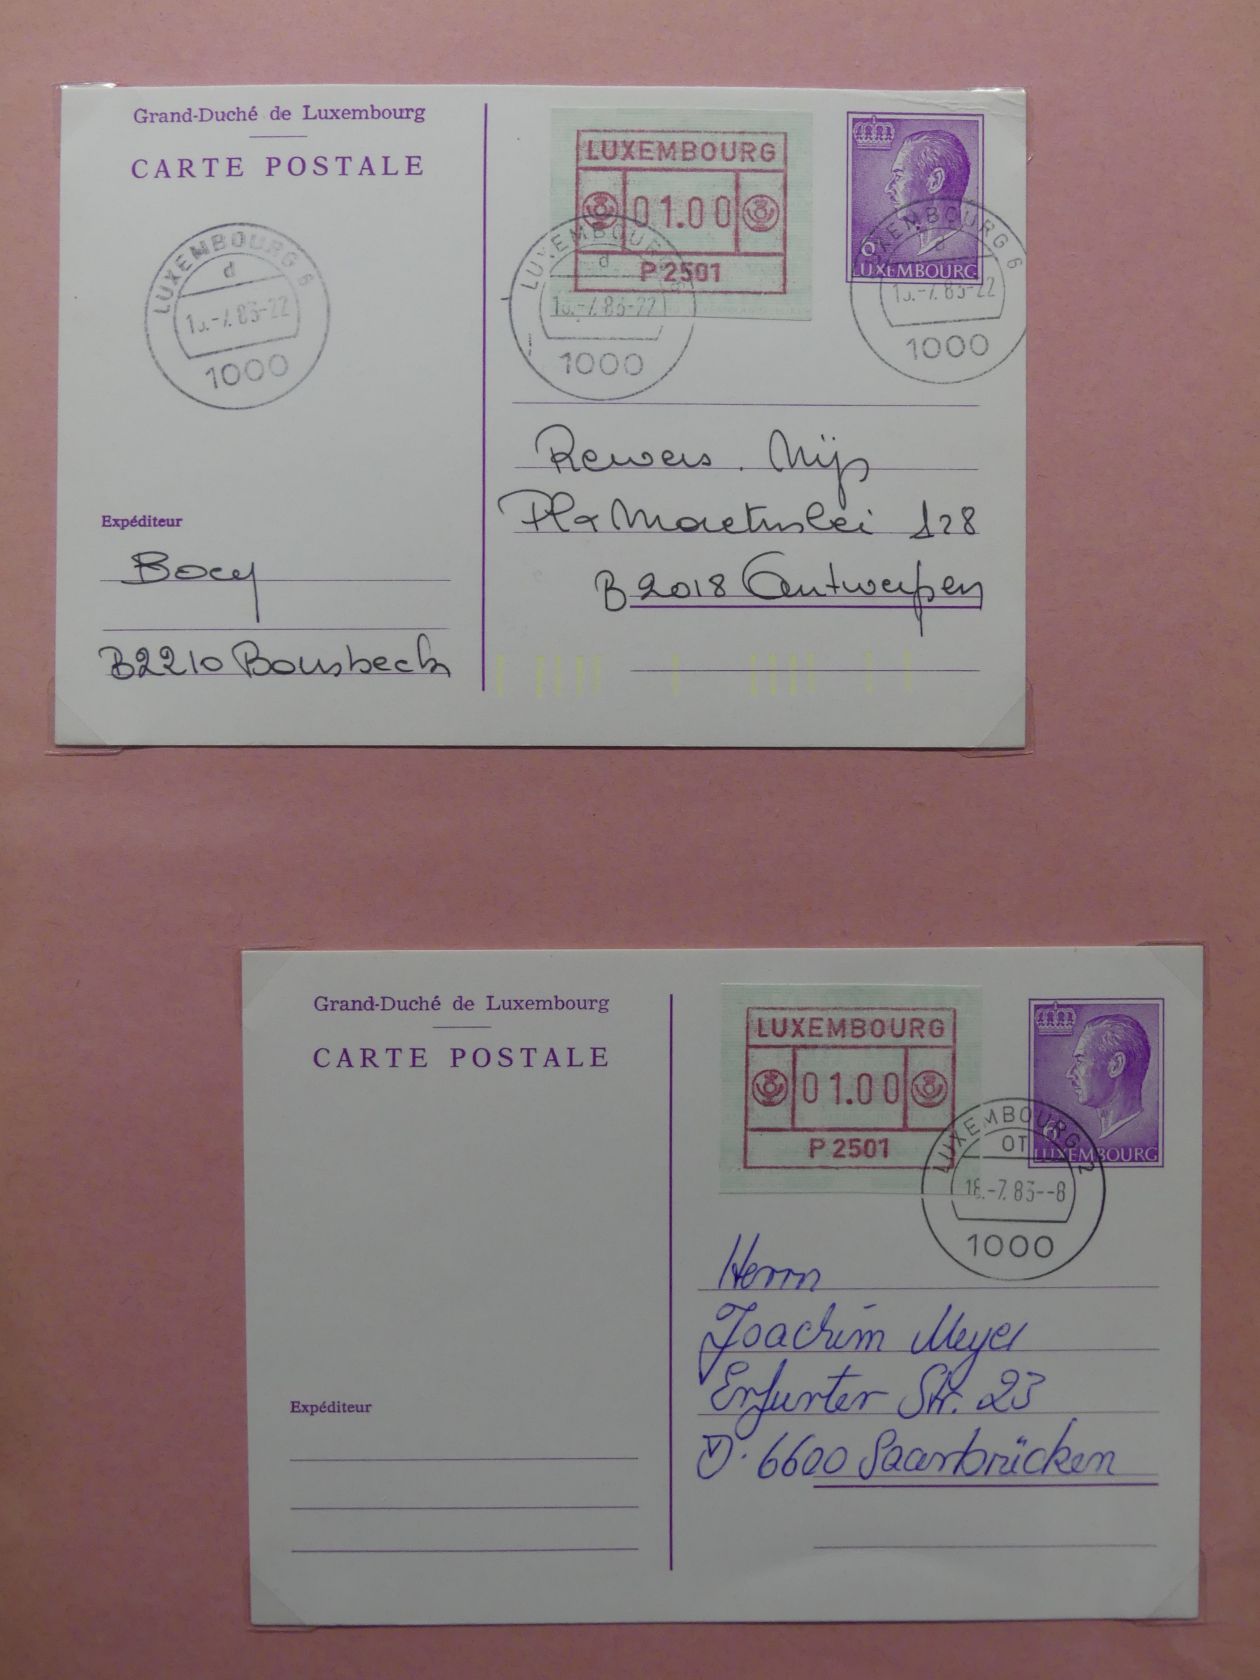 Grand-Duché de Luxembourg
CARTE POSTALE
LUXEMBOURG
01.00
P 2501
6
LUXEMBOURG
LUXEMBOURG 6
d
-7.83-22
1000
LUXEMBOURG
d
-7.83-22
1000
LUXEMBOURG 6
d
-7.83-22
1000
Nijs
128
B2018 Antwerpen
Expéditeur
B2210 Borsbeek
Grand-Duché de Luxembourg
CARTE POSTALE
LUXEMBOURG
01.00
P 2501
6
LUXEMBOURG
LUXEMBOURG 2
OT
18.-7.83--8
1000
Herrn
Joachim Meyer
Erfurter Str. 23
D. 6600 Saarbrücken
Expéditeur